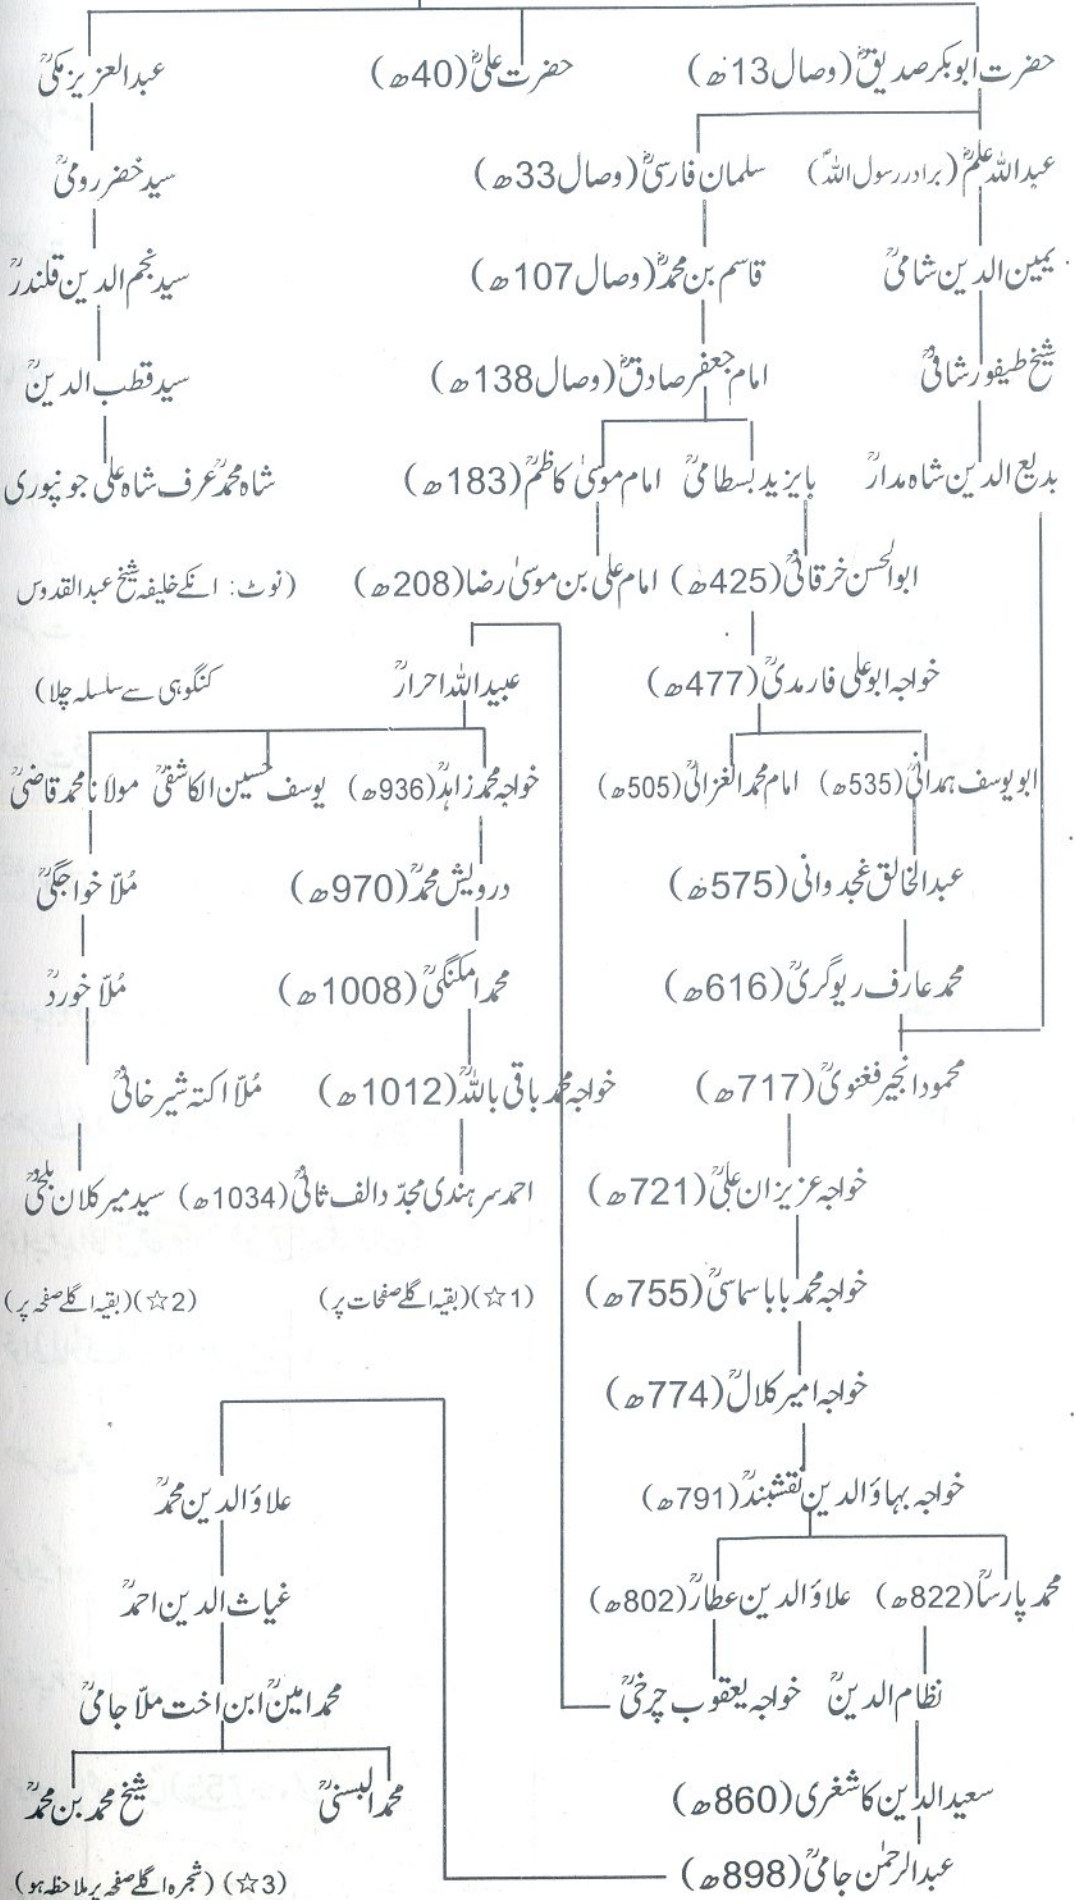 حضرت ابوبکر صدیقؓ (وصال 13ھ) حضرت علیؓ (40ھ) عبدالعزیز مکیؒ
عبداللہ علمؓ (برادر رسول اللہؐ) سلمان فارسیؓ (وصال 33ھ) سید خضر رومیؒ
یمین الدین شامیؒ قاسم بن محمدؓ (وصال 107ھ) سید نجم الدین قلندرؒ
شیخ طیفور شافیؒ امام جعفر صادقؓ (وصال 138ھ) سید قطب الدینؒ
بدیع الدین شاہ مدارؒ بایزید بسطامیؒ امام موسیٰ کاظمؒ (183ھ) شاہ محمدؒ عرف شاہ علی جونپوری
ابوالحسن خرقانیؒ (425ھ) امام علی بن موسیٰ رضا (208ھ) (نوٹ: انکے خلیفہ شیخ عبدالقدوس
خواجہ ابوعلی فارمدیؒ (477ھ) عبیداللہ احرارؒ کنگوہی سے سلسلہ چلا)
ابو یوسف ہمدانیؒ (535ھ) امام محمد الغزالیؒ (505ھ) خواجہ محمد زاہدؒ (936ھ) یوسف حسین الکاشفیؒ مولانا محمد قاضیؒ
عبدالخالق غجدوانی (575ھ) درویش محمدؒ (970ھ) مُلّا خواجگیؒ
محمد عارف ریوگریؒ (616ھ) محمد امکنگیؒ (1008ھ) مُلّا خوردؒ
محمود انجیر فغنویؒ (717ھ) خواجہ محمد باقی باللہؒ (1012ھ) مُلّا اکتہ شیر خانیؒ
خواجہ عزیزان علیؒ (721ھ) احمد سرہندی مجدّد الف ثانیؒ (1034ھ) سید میر کلان بلخیؒ
خواجہ محمد بابا سماسیؒ (755ھ) (☆1) (بقیہ اگلے صفحات پر) (☆2) (بقیہ اگلے صفحہ پر)
خواجہ امیر کلالؒ (774ھ)
خواجہ بہاؤ الدین نقشبندؒ (791ھ) علاؤ الدین محمدؒ
محمد پارساؒ (822ھ) علاؤ الدین عطارؒ (802ھ) غیاث الدین احمدؒ
نظام الدینؒ خواجہ یعقوب چرخیؒ محمد امینؒ ابن اخت ملّا جامیؒ
سعید الدین کاشغری (860ھ) محمد البسنیؒ شیخ محمد بن محمدؒ
عبدالرحمٰن جامیؒ (898ھ) (☆3) (شجرہ اگلے صفحہ پر ملاحظہ ہو)